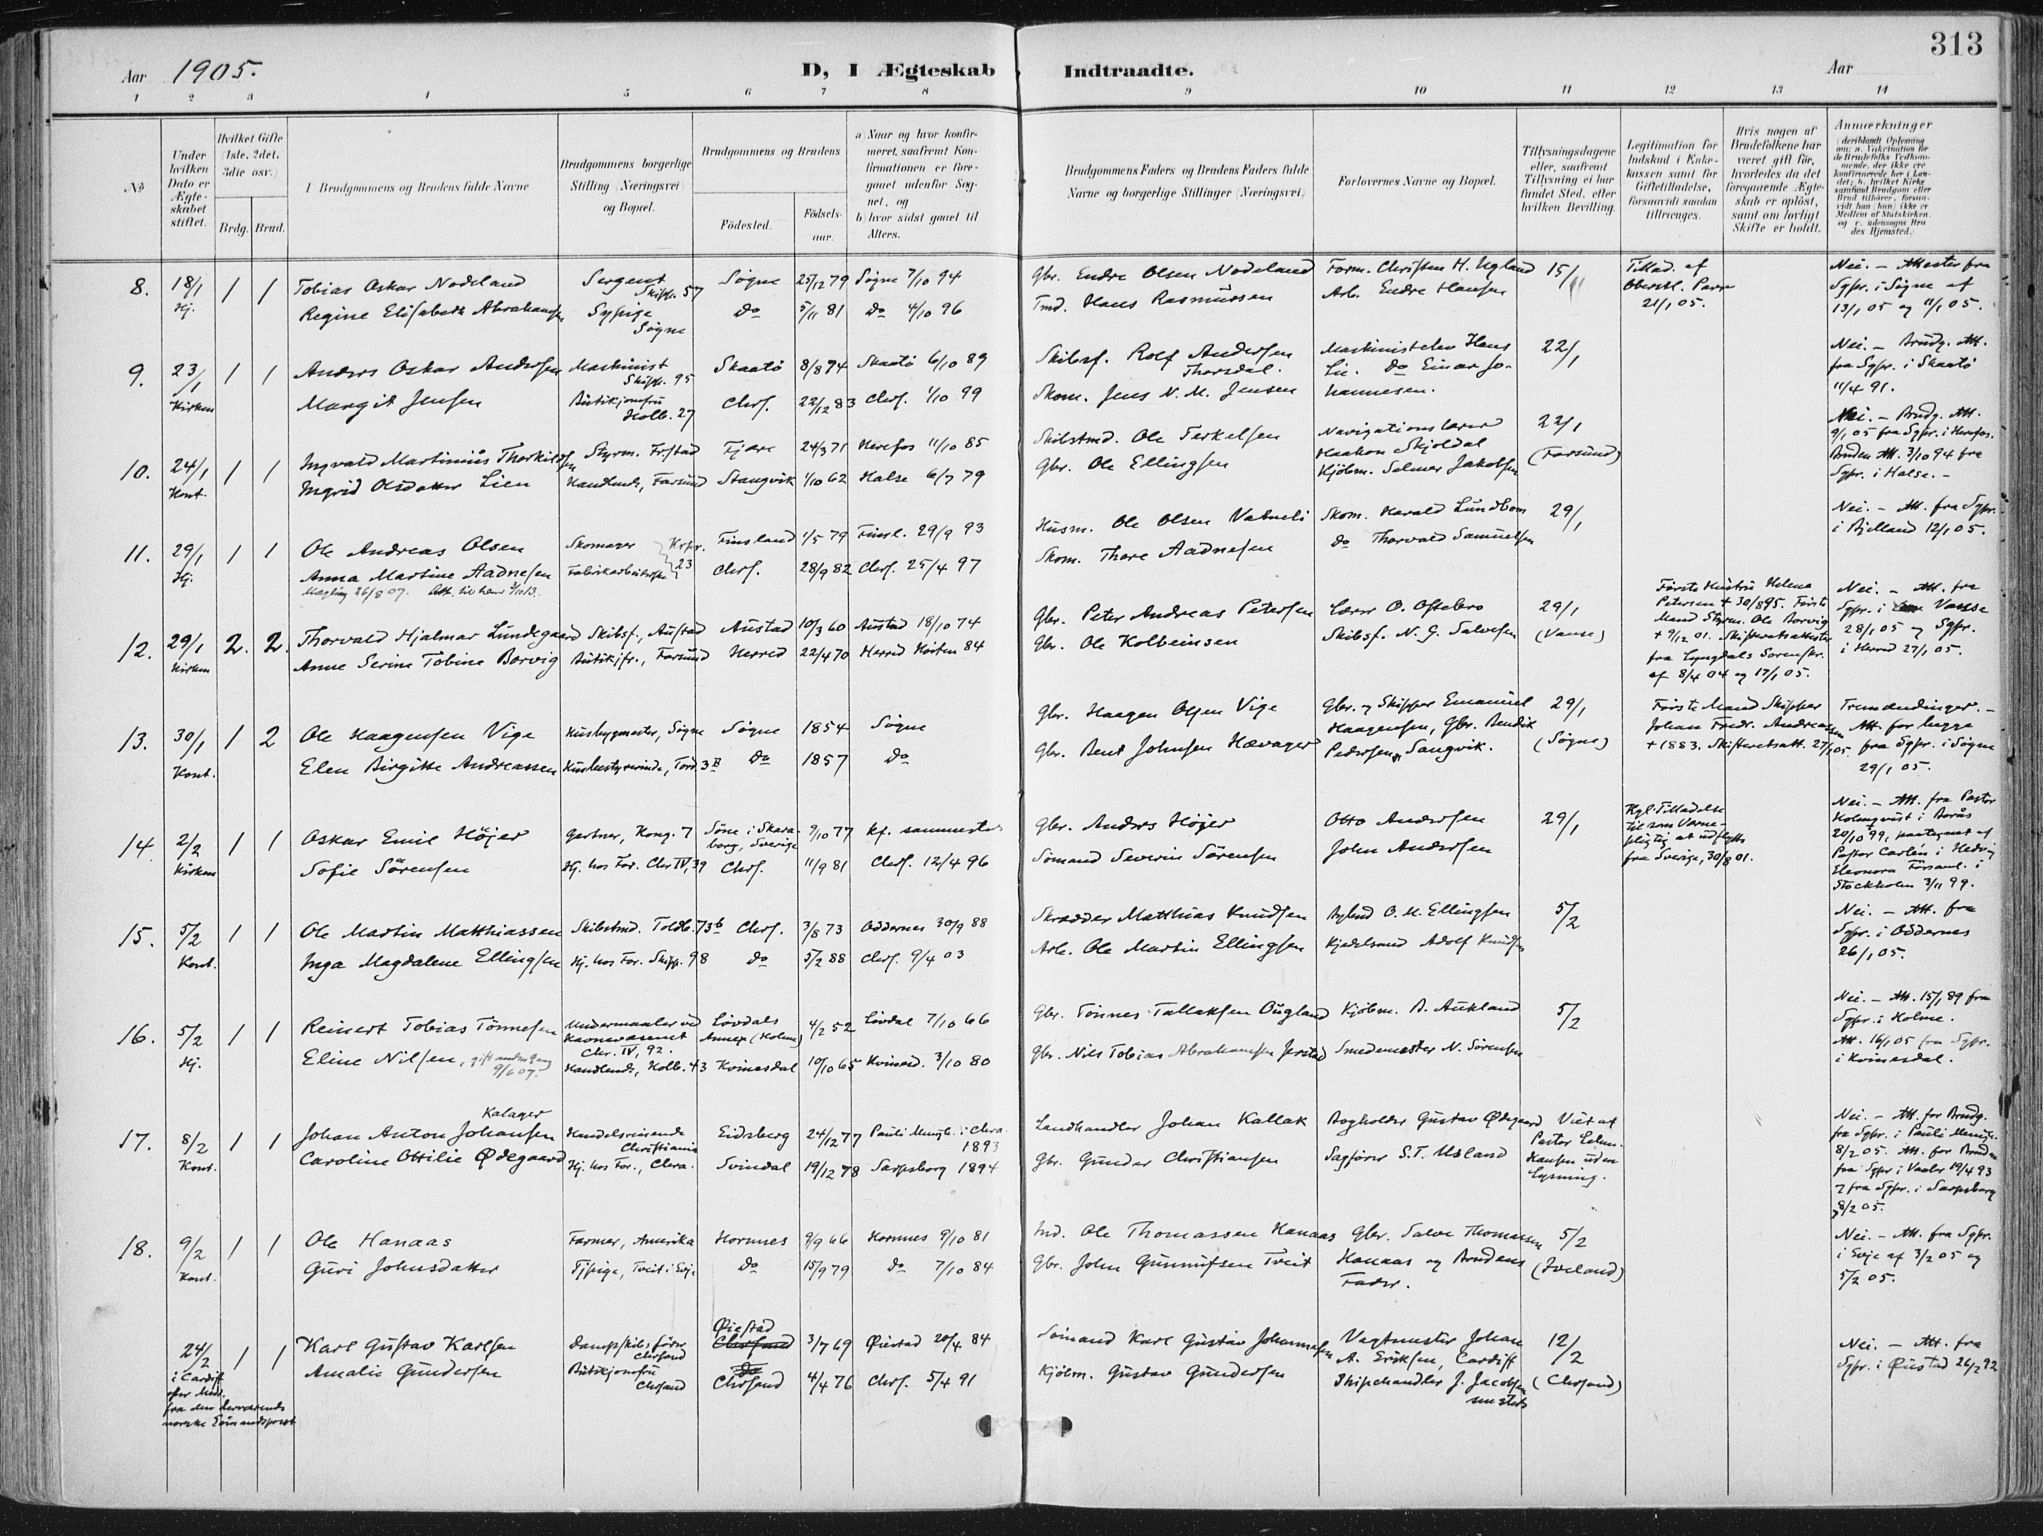 313
Aar 1905.
D, I Ægteskab Indtraadte.
Aar
1 2 3 4 5 6 7 8 9 10 11 12 13 14
№
Under hvilken Dato er Ægteskabet stiftet.
Hvilket Gifte (1ste, 2det, 3die osv.)
Brdg. Brud.
I Brudgommens og Brudens fulde Navne
Brudgommens borgerlige Stilling (Næringsvei) og Bopæl.
Brudgommens og Brudens
Födested.
Födselsaar.
a) Naar og hvor konfirmeret, saafremt Konfirmationen er foregaaet udenfor Sognet, og
b) hvor sidst gaaet til Alters.
Brudgommens Faders og Brudens Faders fulde Navne og borgerlige Stillinger (Næringsvei)
Forlovernes Navne og Bopæl.
Tillysningsdagene eller, saafremt Tillysning ei har fundet Sted, efter hvilken Bevilling.
Legitimation for Indskud i Enkekassen samt for Giftetilladelse, forsaavidt saadan tiltrænges.
Hvis nogen af Brudefolkene har været gift för, hvorledes da det foregaaende Ægteskab er oplöst, samt om lovligt Skifte er holdt.
Anmærkninger
8. 18/1 Hj. 1 1
Tobias Oskar Nodeland
Sergent Skipp. 57
Søgne 25/12 79 Søgne 7/10 94
Gbr. Endre Olsen Nodeland
Form. Christen H. Ugland
15/1
Tillad. af Oberstl. 21/1 05.
Nei. – Attester fra Sgpr. i Søgne af 13/1 05 og 11/1 05.
Regine Elisabeth Abrahamsen
Sypige Søgne
Do 5/11 81 Do 4/10 96
Tmd. Hans Rasmussen
Arb. Endre Hansen
9. 23/1 Kirken 1 1
Anders Oskar Andersen
Maskinist Skipp. 95
Skaatö 8/8 74 Skaatö 6/10 89
Skibsf. Rolf Andersen Thorsdal.
Maskinistelev Hans Lie. do Einar Johannesen.
22/1
Nei. – Brudg. Att. fra Sgpr. i Skaatö 11/4 91.
Margit Jensen
Butikjomfru Holb. 27
Chrs. 22/12 83 Chrs. 1/10 99
Skom. Jens N. M. Jensen
10. 24/1 Kont. 1 1
Ingvald Martinius Thorkildsen
Styrm. Frstad
Fjære 24/3 71 Herefos 11/10 85
Skibstmd. Ole Terkelsen
Navigationslærer Haakon Skjoldal
22/1 (Farsund)
Nei. – Brudg. Att. 9/1 05 fra Sgpr. i Herefos. Bruden Att. 3/10 94 fra Sgpr. i Halse. –
Ingrid Olsdatter Lien
Handlende, Farsund
Stangvik 1/10 62 Halse 6/7 79
Gbr. Ole Ellingsen
Kjöbm. Selmer Jakobsen
11. 29/1 Hj. 1 1
Ole Andreas Olsen
Skomager
Finsland 1/5 79 Finsl. 29/9 93
Husm. Ole Olsen Vatneli
Skom. Harald Lundbom
29/1
Nei. – Att. fra Sgpr. i Bjelland 12/1 05.
Anna Martine Aadnesen
Fabrikarbeiderske
23
Chrs. 28/9 82 Chrs. 25/4 97
Skom. Thore Aadnesen
do Thorvald Samuelsen
12. 29/1 Kirken 2. 2.
Thorvald Hjalmar Lundegaard
Skibsf., Austad
Austad 10/3 60 Austad 18/10 74
Gbr. Peter Andreas Petersen
Lærer O. Oftebro
29/1 (Vanse)
Første Hustru Helene Petersen + 30/8 95. Første Mand Styrm. Ole Borvig + 9/12 01. Skifteretsattester fra Lyngdals Sorenskr. af 8/4 04 og 17/1 05.
Nei. – Att. fra Sgpr. i Vanse 28/1 05 og Sgpr. i Herred 27/1 05.
Anne Serine Tobine Borvig
Butikjfr., Farsund
Herred 22/4 70 Herred Høsten 84
Gbr. Ole Kolbeinsen
Skibsf. N. G. Salvesen
13. 30/1 Kont. 1 2
Ole Haagensen Vige
Husbygmester, Søgne
Søgne 1854 Søgne
Gbr. Haagen Olsen Vige
Gbr. og Skipper Emanuel Haagensen, Gbr. Bendik Pedersen, Sangvik.
29/1 (Søgne)
Første Mand Skipper Johan Fredr. Andreassen + 1883. Skifteretsatt. 27/1 05
Tremændinger. – Att. for begge fra Sgpr. i Søgne 29/1 05.
Elen Birgitte Andreassen
Husbestyrerinde, Tord. 3 B
Do 1857 Do
Gbr. Bent Johnsen Hævager
14. 2/2 Kirken 1 1
Oskar Emil Höjer
Gartner, Kong. 7
Söne i Skaraborg, Sverige 9/10 77 kf. sammesteds
Gbr. Anders Höjer
Otto Andersen
29/1
Kgl. Tilladelse til som Værnepligtig at udflytte fra Sverige, 30/8 01.
Nei. – Att. fra Pastor Holmqvist i Borås 20/10 99, paategnet af Pastor Carlén i Hedvig Eleonora Församl. i Stockholm 3/11 99.
Sofie Sörensen
Hj. hos For. Chr IV, 39
Chrs. 11/9 81 Chrs. 12/4 96
Sömand Severin Sörensen
John Andersen
15. 5/2 Kont. 1 1
Ole Martin Matthiassen
Skibstmd. Toldb. 73 b
Chrs. 3/8 73 Oddernes 30/9 88
Skrædder Matthias Knudsen
Bylud O. M. Ellingsen
5/2
Nei. – Att. fra Sgpr. i Oddernes 26/1 05.
Inga Magdalene Ellingsen
Hj. hos For. Skipp. 98
do 5/2 88 Chrs. 9/4 03
Arb. Ole Martin Ellingsen
Kjedelsmed Adolf Knudsen
16. 5/2 Hj. 1 1
Reinert Tobias Tönnesen
Undermaaler ved Kronevæsenet Chr. IV, 92.
Lövdals Annex (Holme) 4/2 52 Lövdal 7/10 66
Gbr. Tönnes Tallaksen Öugland
Kjöbm. B. Aukland
5/2
Nei. – Att. 15/1 89 fra Sgpr. i Holme. Att. 16/1 05 fra Sgpr. i Kvinesdal.
Eline Nilsen, gift anden Gang 9/6 07.
Handlende, Holb. 43
Kvinesdal 10/10 65 Kvinesd. 3/10 80
Gbr. Nils Tobias Abrahamsen Jerstad
Smedemester N. Sörensen
17. 8/2 Kont. 1 1
Kalager
Johan Anton Johansen
Handelsreisende Christiania
Eidsberg 24/12 77 Pauli Mengh. i Chra 1893
Landhandler Johan Kallak
Bogholder Gustav Ødegaard
Viet af Pastor uden Lysning.
Nei. – Att. for Brudg. fra Sgpr. i Pauli Mengh. 8/2 05. Att. for Bruden fra Sgpr i Vaaler 19/4 93 og fra Sgpr. i Sarpsborg 8/2 05.
Caroline Ottilie Ødegaard
Hj. hos For., Chra.
Svindal 19/12 78 Sarpsborg 1894
Gbr. Gunder Christiansen
Sagförer S. T. Usland
18. 9/2 Kont. 1 1
Ole Hanaas
Farmer, Amerika
Hornnes 9/9 66 Hornnes 9/10 81
Ind. Ole Thomassen Hanaas
Gbr. Salve Thomassen Hanaas og Brudens Fader.
5/2 (Iveland)
Nei. – Att. fra Sgpr. i Evje af 3/2 05 og 5/2 05.
Guri Johnsdatter
Tjpige, Tveit i Evje
do 15/9 79 Do 7/10 84
Gbr. John Gunnufsen Tveit
24/2 i Cardiff efter Med. fra den derværende norske Sömandsprest 1 1
Karl Gustav Karlsen
Dampskibsförer Chrsand
Øiestad Chrsand 3/7 69 Øiestad 20/4 84
Sömand Karl Gustav Johannesen
Vagtmester Johan A. Eriksen, Cardiff
12/2 (Chrsand)
Nei. – Att. fra Sgpr. i Øiestad 26/2 92
Amalie Gundersen
Butikjomfru Chrsand
Do Chrsand 4/4 76 Chrs. 5/4 91
Kjöbm. Gustav Gundersen
Shipchandler J. Jacobsen smsteds